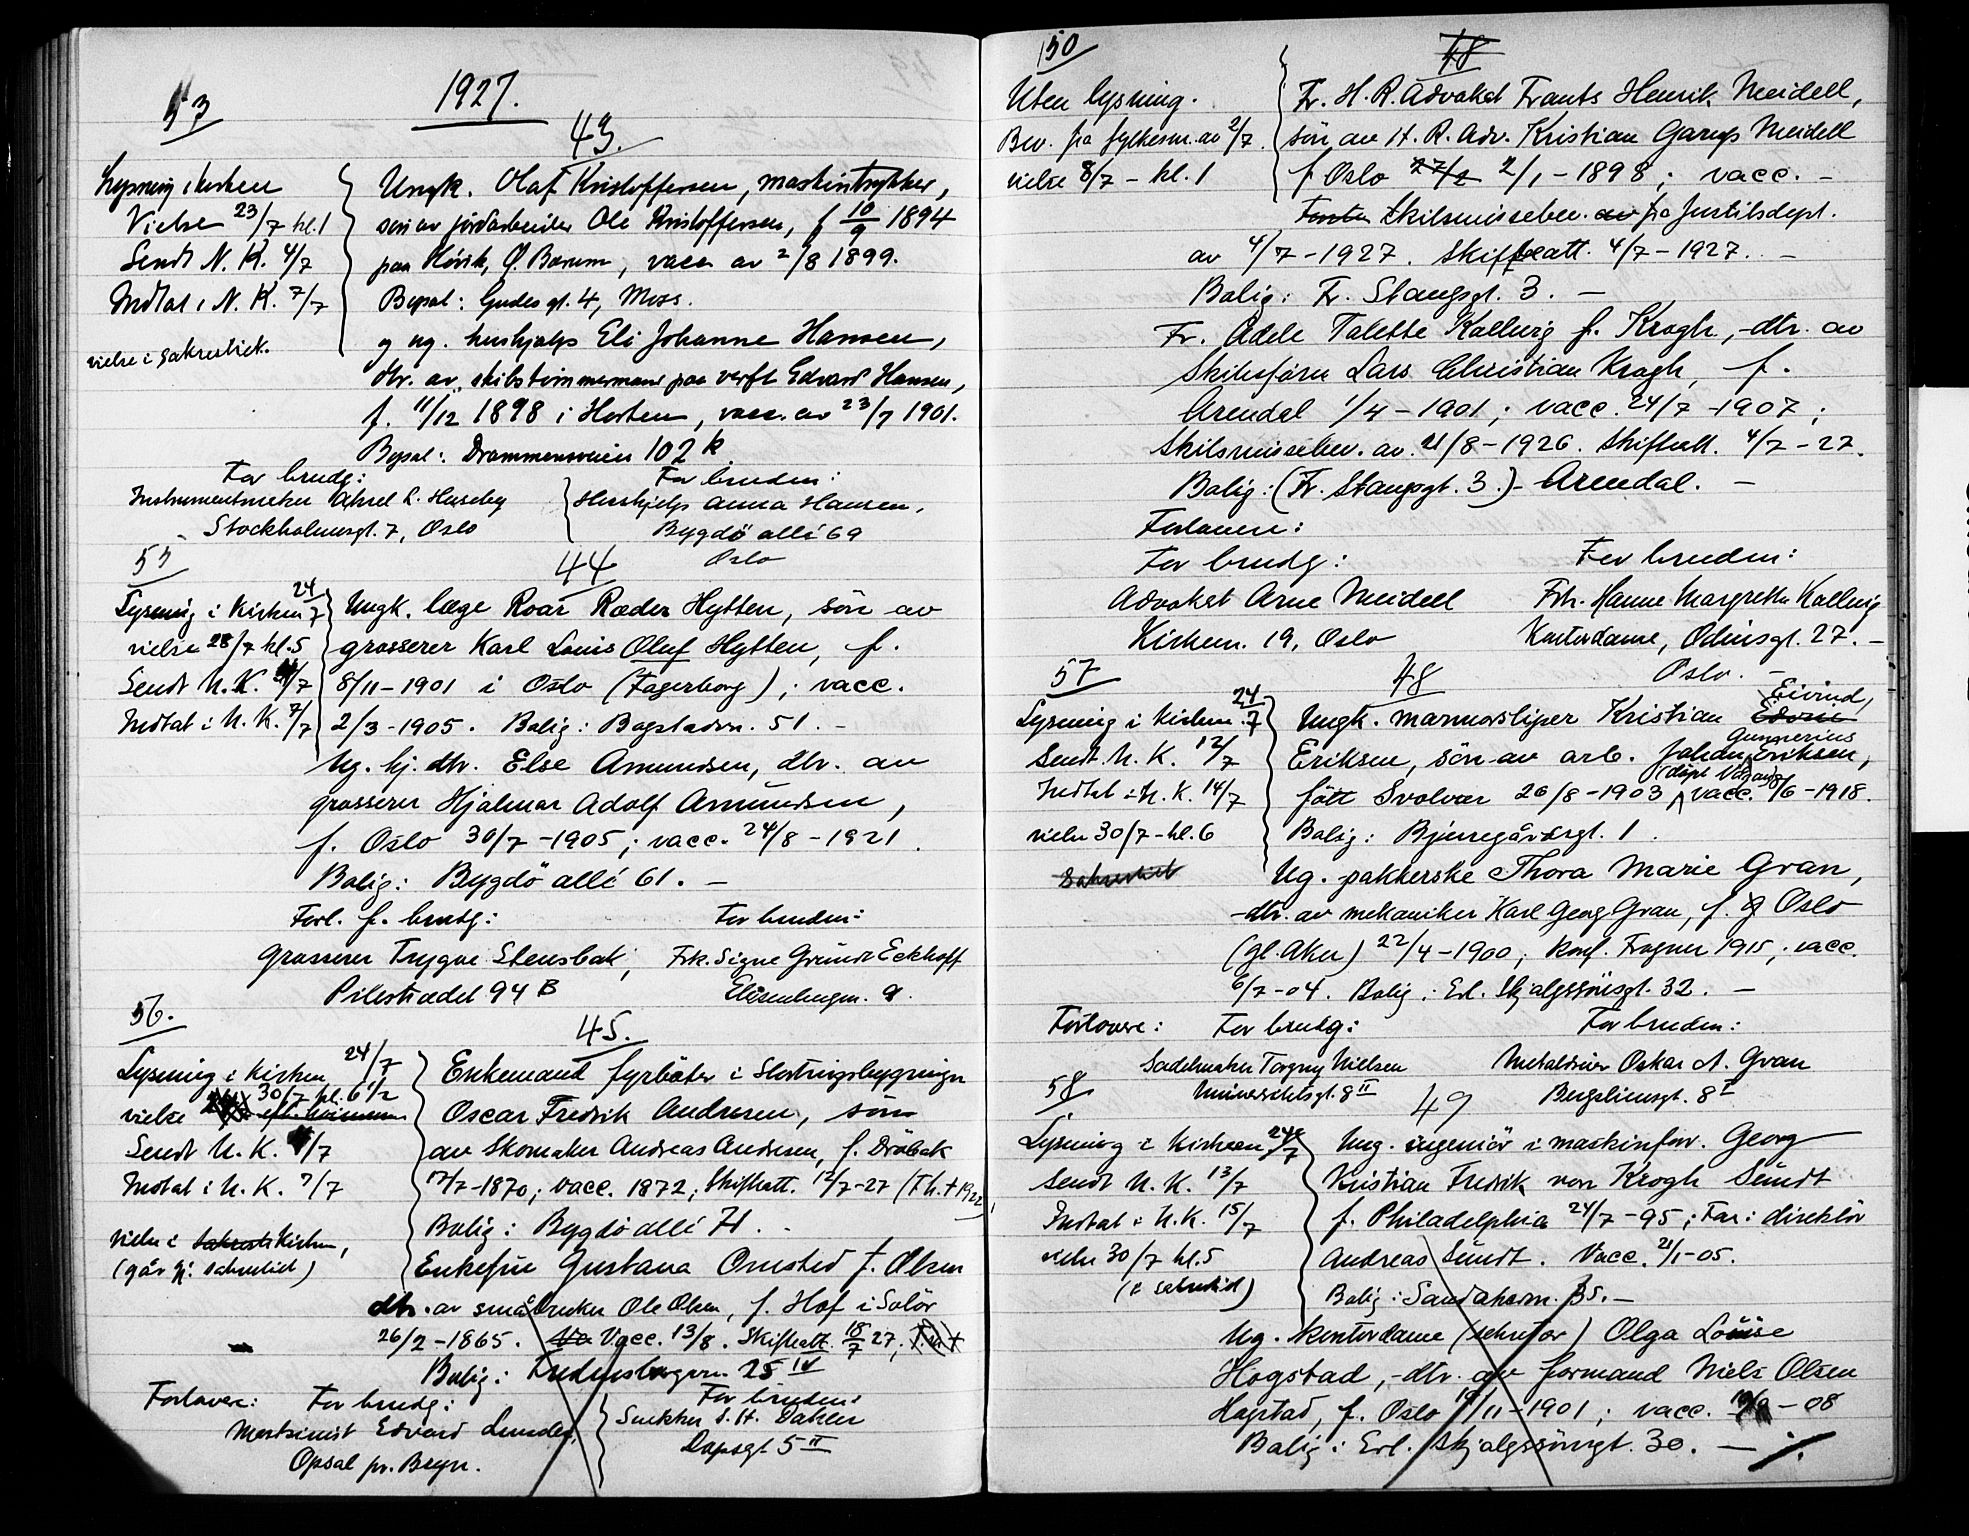 1927.
53
43.
Lysning i kirken
Vielse 23/7 kl. 1
Sendt N. K. 4/7
Indtat i N. K. 7/7
vielse i sakrestiet.
Ungk. Olaf Kristoffersen, maskintrykker,
søn av jordarbeider Ole Kristoffersen, f 10/9 1894
paa Høvik, Ø. Bærum, vacc. av 2/8 1899.
Bopæl: Gudesgt. 4, Moss.
og ug. hushjælp Eli Johanne Hansen,
dtr. av skibstømmermand paa verft Edvard Hansen,
f. 11/12 1898 i Horten, vacc. av 23/7 1901.
Bopæl: Drammensveien 102 k
For brudg: For bruden:
Instrumentmaker Aksel R. Huseby Hushjelp Anna Hansen,
Stockholmsgt. 7, Oslo Bygdö allé 69
Oslo
55
44
Lysning i Kirken 24/7
vielse 28/7 kl. 5
Sendt N. K. /7
Indtat i N. K. 7/7
Ungk. læge Roar Ræder Hytten, sön av
grosserer Karl Louis Oluf Hytten, f.
8/11-1901 i Oslo (Fagerborg); vacc.
2/3-1905. Bolig: Bogstadvn. 51. -
Ug. hj. dtr. Else Amundsen, dtr. av
grosserer Hjalmar Adolf Amundsen,
f. Oslo 30/7-1905; vacc. 24/8-1921.
Bolig: Bygdö allé 61. -
Forl. f. brudg: For bruden:
Grosserer Trygve Stensbak, Frk. Signe Gründt Eckhoff
Pilestrædet 94 B Eilisenbergvn. 9.
56.
45.
Lysning i Kirken 24/7
vielse 30/7 kl. 6 1/2
Sendt N. K. /7
Indtat i N. K. 7/7
vielse i Sakresti Kirken,
(går gj. sakrestiet)
Enkemand fyrböter i Stortingsbygningen
Oscar Fredrik Andresen, sön
av Skomaker Andreas Andresen, f. Dröbak
17/7-1870; vacc. 1872; Skifteatt. 12/7-27 (Fh. + 1922),
Bolig: Bygdö allé 71. -
Enkefru Gustava Onsted f. Olsen
dtr. av småbruker Ole Olsen, f. Hof i Solör
26/2-1865. Vacc. 13/8. Skifteatt. 18/7 27.
Bolig: Fredensborgvn. 25 IV
Forlovere: For brudg: For bruden:
Maskinist Edvard Lunder, Snekker S. H. Dahler
Opsal pr. Bryn. Dopsgt 5 II
50
48
Uten lysning.
Bev. fra fylkesm. av 2/7.
vielse 8/7 - kl. 1
Fr. H. R. Advokat Frants Henrik Meidell,
sön av H. R. Adv. Kristian Garup Meidell
f Oslo 27/2 2/1-1898; vacc. -
Skilsmissebev. av fra Justitsdept.
av 4/7-1927. Skifteatt. 4/7-1927. -
Bolig: Fr. Stangsgt. 3. -
Fr. Adele Talette Kallevig f. Krogh, -dtr. av
Skibsförer Lars Christian Krogh, f.
Arendal 1/4-1901; vacc. 24/7-1907;
Skilsmissebev. av 21/8-1926. Skifteatt. 4/7-27.
Bolig: (Fr. Stangsgt. 3.) - Arendal. -
Forlovere:
For brudg: For bruden:
Advokat Arne Meidell Frk. Hanne Margrethe Kallevig
Kirkevn. 19, Oslo Kontordame, Odinsgt. 27. -
Oslo. -
57
48
Lysning i Kirken 24/7
Sendt N. K. 12/7
Indtat i N. K. 14/7
vielse 30/7 - kl. 6
Sakrestiet
Ungk. marmorsliper Kristian Edvin Eivind,
Eriksen, sön av arb. Johan Gunnerius Eriksen,
fött Svolvær 26/8-1903 (döpt Vågan) vacc. 8/6-1918.
Bolig: Bjerregårdsgt. 1.
Ug. pakkerske Thora Marie Gran,
-dtr. av mekaniker Karl Georg Gran, f. Oslo
(gl. Aker) 22/4-1900; Konf. Fragner 1915; vacc.
6/7-04. Bolig: Erl. Skjalgssönsgt. 32. -
Forlovere: For brudg: For bruden:
Sadelmaker Torgny Nielsen Metaldreier Oskar A. Gran
Universitetsgt. 8 II Bergliensgt. 8 I
58
49
Lysning i Kirken 24/7
Sendt N. K. 13/7
Indtat i N. K. 15/7
vielse 30/7 kl. 5
(i sakrestiet)
Ung. ingeniör i maskinforr. Georg
Kristian Fredrik von Krogh Sundt
f. Philadelphia 24/7-95; Far: direktör
Andreas Sundt. Vacc. 21/1-05.
Bolig: Sandakervn. 35. -
Ug. kontordame (sekretær) Olga Louise
Hogstad, -dtr. av formand Niels Olsen
Hogstad, f. Oslo 19/11-1901; vacc. -08
Bolig: Erl. Skjalgssönsgt. 30. - ./.